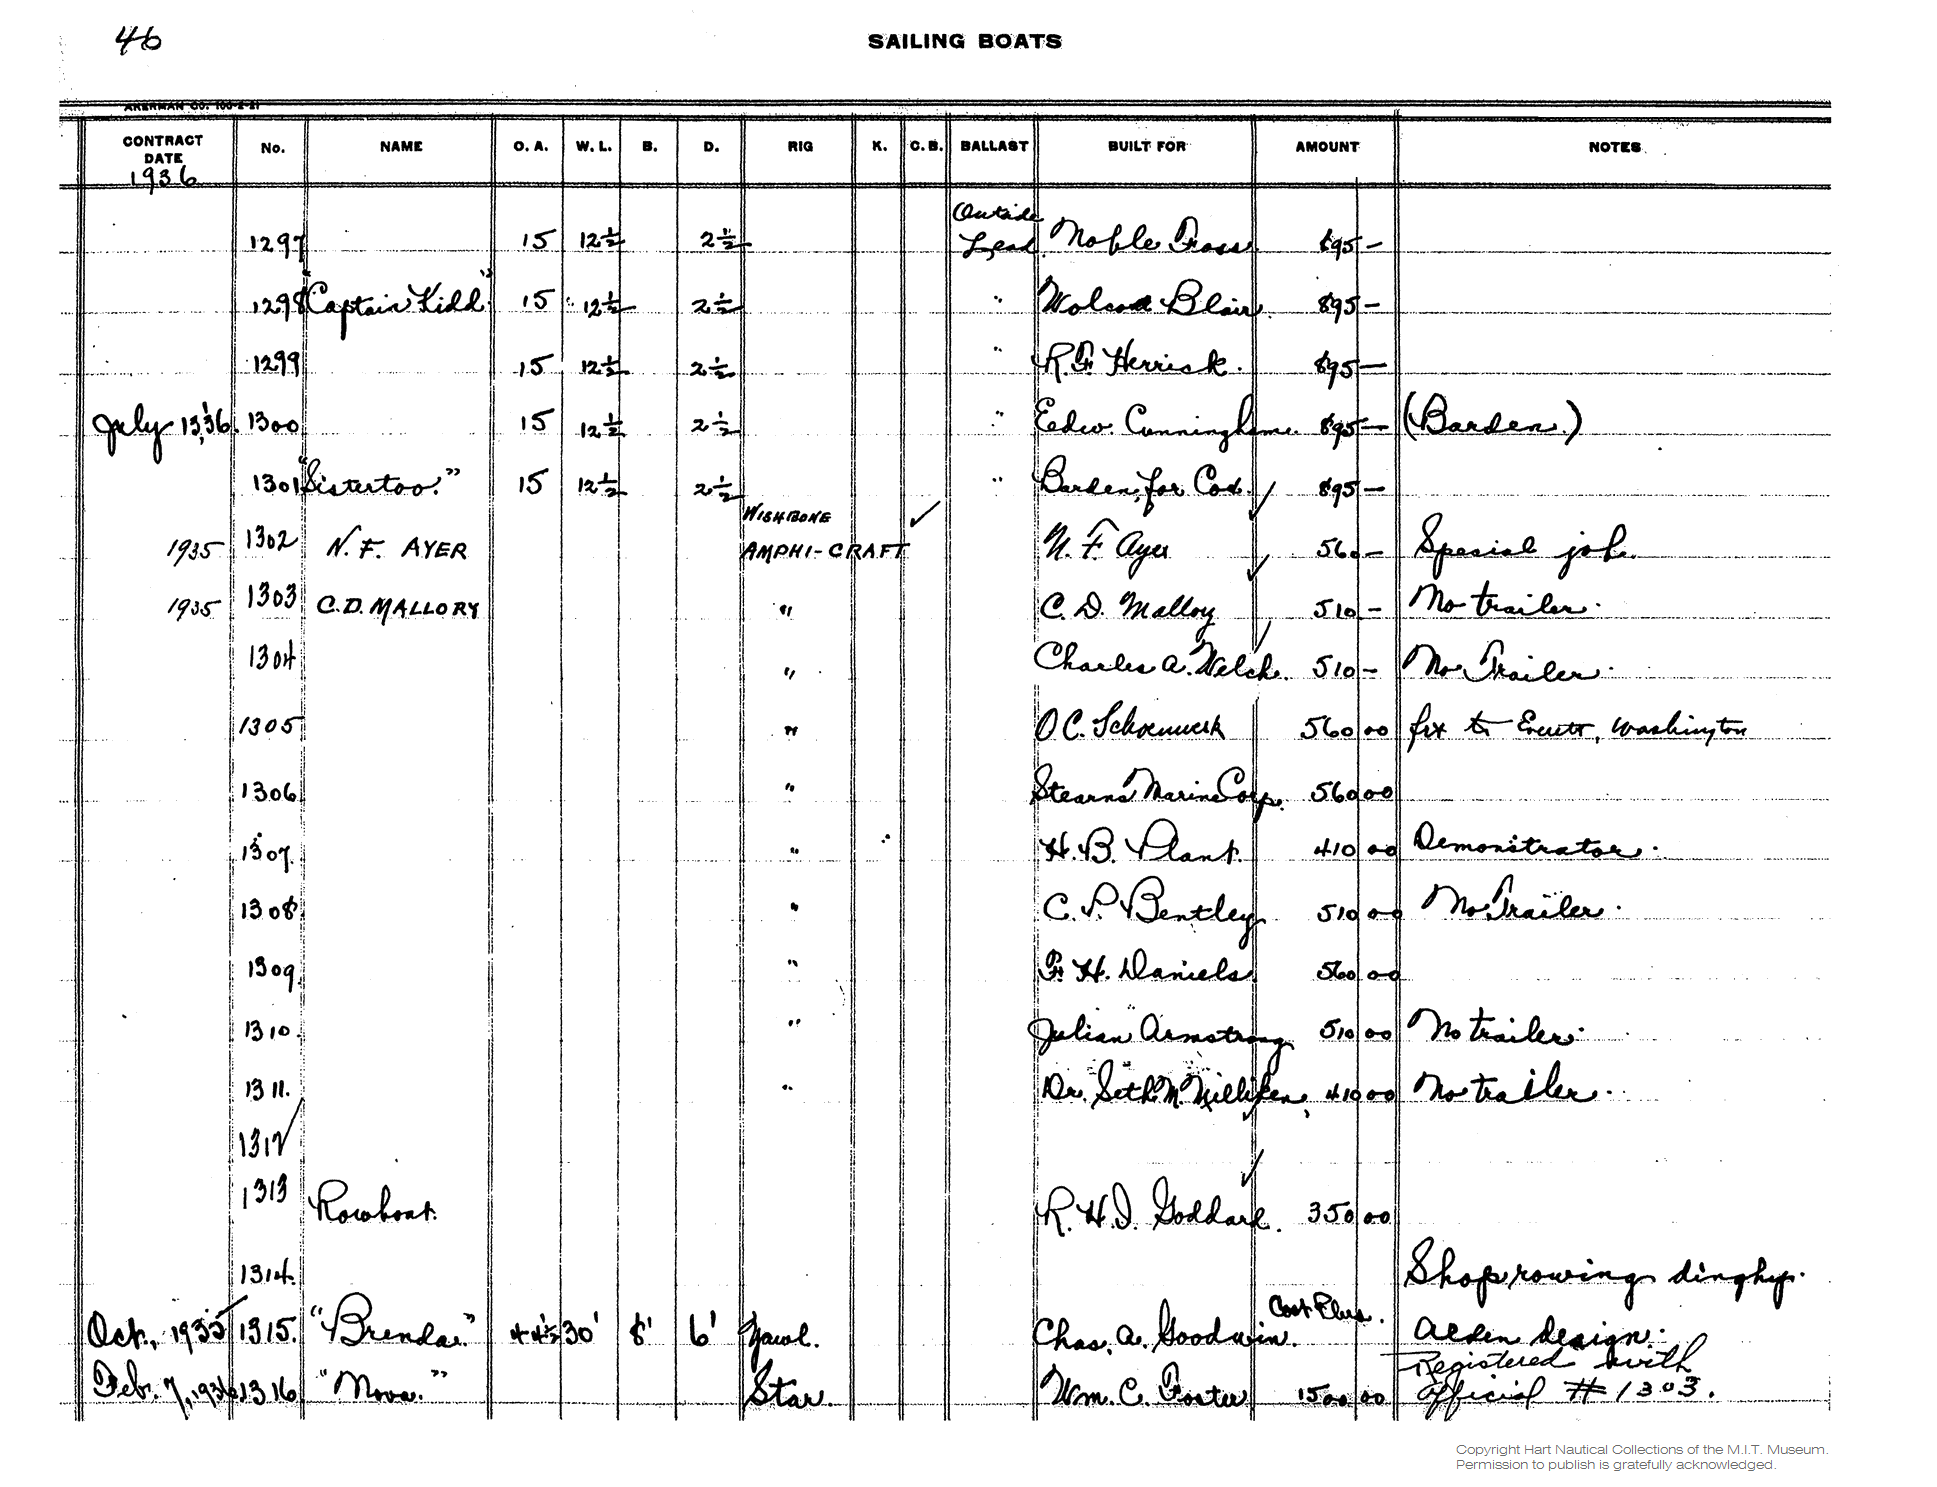 46
SAILING BOATS
AKERMAN CO. 100-2-21
CONTRACT DATE No. NAME O. A. W. L. B. D. RIG K. C. B. BALLAST BUILT FOR AMOUNT NOTES
1936
1297 15 12½ 2½ Outside Lead Noble Foss. 895 –
1298 "Captain Kidd" 15 12½ 2½ " Blair. 895 –
1299 15 12½ 2½ " R. F. Herrick. 895 –
July 13, '36. 1300 15 12½ 2½ " Edw. Cunningham. 895 – (Barden.)
1301 "Sistertoo." 15 12½ 2½ " Barden, for Cox. 895 –
1935 1302 N. F. AYER WISHBONE AMPHI-CRAFT ✓ N. F. Ayer ✓ 560 – Special job.
1935 1303 C.D. MALLORY " C. D. Malloy ✓ 510 – No trailer.
1304 " Charles A. Welch. ✓ 510 – No Trailer.
1305 " O C. Schoenwerk 560 00 frt to Everett, Washington
1306 " Stearns Marine Corp. 560 00
1307. " H. B. Plant. 410 00 Demonstrator.
1308. " C. P. Bentley 510 00 No Trailer.
1309. " F. H. Daniels. 560 00
1310. " Julian Armstrong 510 00 No trailer.
1311. " Dr. Seth M. Milliken, 410 00 No trailer.
1312 ✓
1313 Rowboat. R. H. I. Goddard. ✓ 350 00
1314. Shop rowing dinghy.
Oct., 1935 1315. "Brenda." 44½ 30' 8' 6' Yawl. Chas. A. Goodwin. Cost Plus. Alden design.
Feb. 7, 1936 1316. "Nova." Star. Wm. C. Foster 1500 00 Registered with official # 1303.
Copyright Hart Nautical Collections of the M.I.T. Museum.
Permission to publish is gratefully acknowledged.